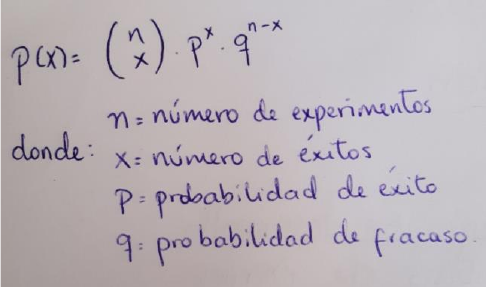 p(x) = (n x) · p^x · q^{n-x}
n = número de experimentos
donde: x = número de éxitos
p = probabilidad de éxito
q = probabilidad de fracaso.